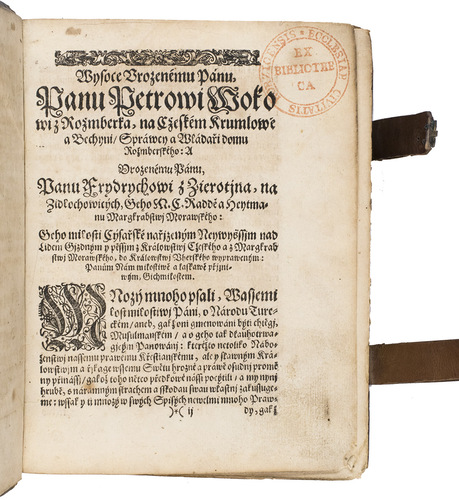 Wysoce Vrozenému Pánu,
Panu Petrowi Woko
wi z Rožmberka, na Czeském Krumlowě
a Bechyni/ Spráwcy a Wládaři domu
Rožmberského: A
Vrozenému Pánu,
Panu Frydrychowi z Zierotjna, na
Zidlochowitých, Geho M. C. Raddě a Heytma-
nu Margkrabstwj Morawského:
Geho milosti Cýsařské nařjzeným Neywyšším nad
Lidem Gjzdným y pěssjm z Králowstwj Czeského a z Margkrab
stwj Morawského, do Králowstwj Vherského wyprawenym:
Panům Nám milostiwě a laskawě přjzni-
wým, Gichmilostem.
MNozý mnoho psali, Wassjemi
lostimilostiwj Páni, o Národu Ture-
ckém/ aneb, gakž oni gmenowáni býti chtěgj,
Musulmanském/ a o geho tak dlauhotrwa-
gjcým Panowánj: kteréžto netoliko Nábo-
ženstwj nassemu prawému Křestianskému, ale y slawným Krá-
lowstwjm a
přinássj/ gakož toho nětco předkowé nássi pocýtili/ a my nynj
hrubě, s náramným strachem a sskodau swau wlastnj zakaussyge-
me: wssak y ti mnozý w swých Spisých newelmi mnoho Praw-
)*( ij dy, gakž
EX
BIBLIOTHE
CA
CIVITATIS